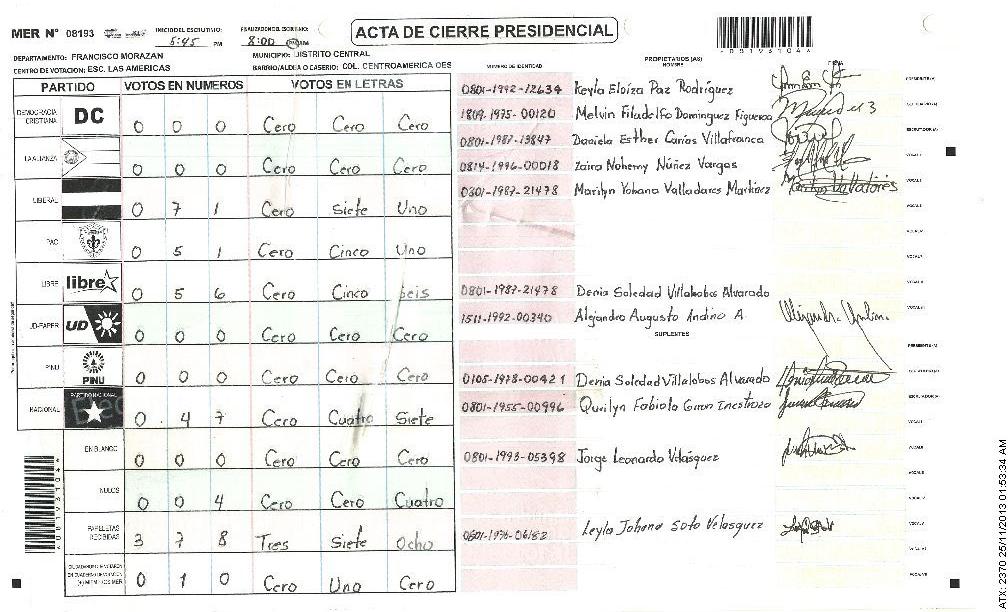 MER Nº 08193
INICIO DEL ESCRUTINIO: 5:45 PM
FINALIZACION DEL ESCRUTINIO: 8:00
ACTA DE CIERRE PRESIDENCIAL
DEPARTAMENTO: FRANCISCO MORAZAN
MUNICIPIO: DISTRITO CENTRAL
CENTRO DE VOTACION: ESC. LAS AMERICAS
BARRIO/ALDEA O CASERIO: COL. CENTROAMERICA OES
PARTIDO VOTOS EN NUMEROS VOTOS EN LETRAS
DEMOCRACIA CRISTIANA DC 0 0 0 Cero Cero Cero
LA ALIANZA 0 0 0 Cero Cero Cero
LIBERAL 0 7 1 Cero Siete Uno
PAC 0 5 1 Cero Cinco Uno
LIBRE libre 0 5 6 Cero Cinco Seis
UD-FAPER UD 0 0 0 Cero Cero Cero
PINU PINU 0 0 0 Cero Cero Cero
NACIONAL PARTIDO NACIONAL 0 4 7 Cero Cuatro Siete
EN BLANCO 0 0 0 Cero Cero Cero
NULOS 0 0 4 Cero Cero Cuatro
PAPELETAS RECIBIDAS 3 7 8 Tres Siete Ocho
0 1 0 Cero Uno Cero
NUMERO DE IDENTIDAD
PROPIETARIOS (AS)
NOMBRE
FIRMA
0801-1992-12634 Keyla Eloíza Paz Rodríguez
1809-1975-00120 Melvin Filadelfo Dominguez Figueroa
0801-1987-13847 Daniela Esther Carías Villafranca
0814-1996-00018 Zaira Nohemy Núñez Vargas
0301-1987-21478 Marilyn Yohana Valladares Martínez
0801-1987-21478 Denia Soledad Villalobos Alvarado
1511-1992-00340 Alejandro Augusto Andino A
SUPLENTES
0105-1978-00421 Denia Soledad Villalobos Alvarado
0801-1955-00996 Fabiola
0801-1993-05398 Jorge Leonardo Velásquez
Leyla Johana Soto Velasquez
ATX: 2370 25/11/2013 01:53:34 AM